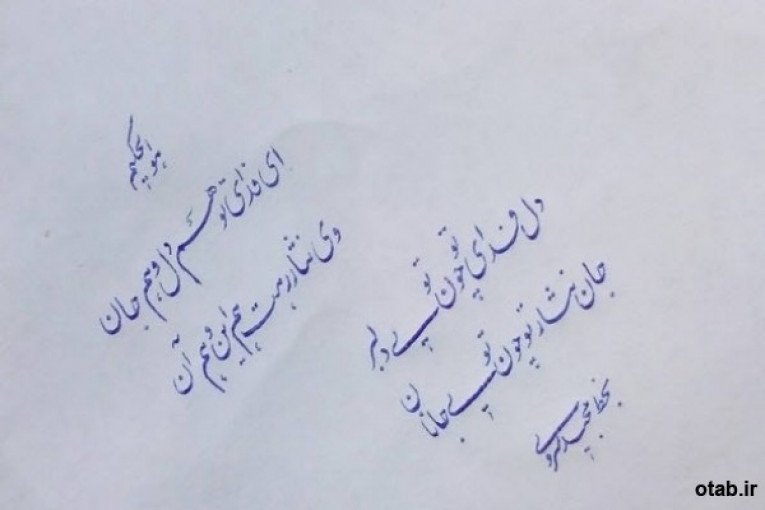 هو الحکیم
ای فدای تو هم دل و هم جان
وی نثار رهت هم این و هم آن
دل فدای تو چون تویی دلبر
جان نثار تو چون تویی جانان
بخط مجید
otab.ir